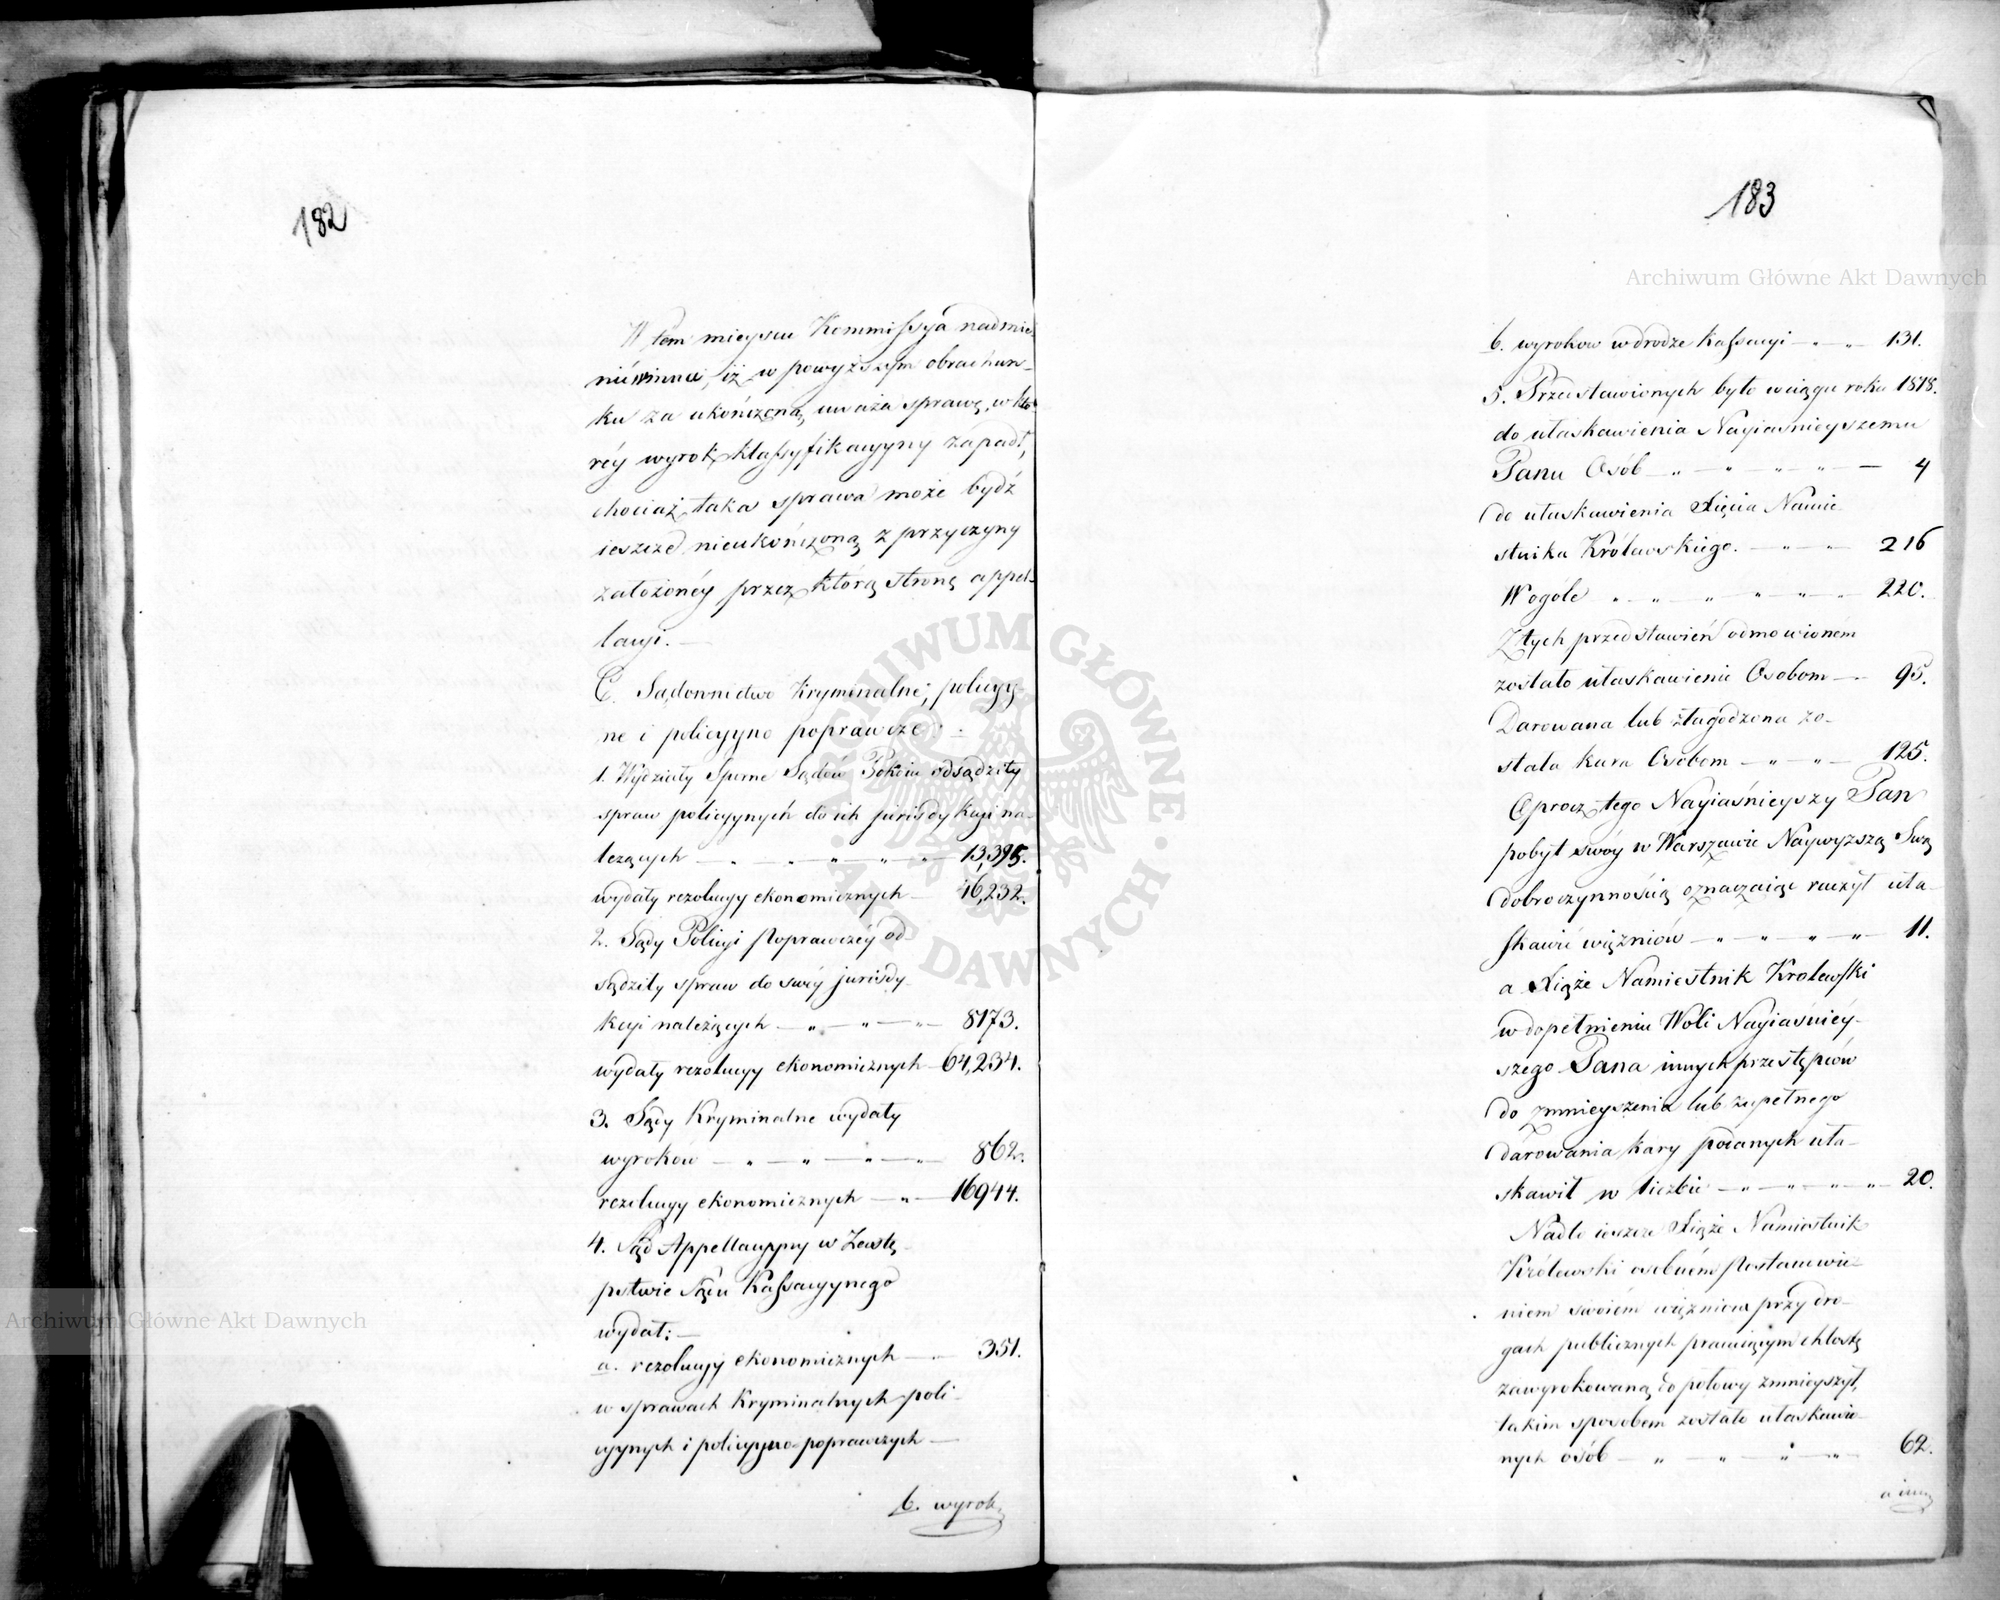 182
W tém mieyscu Kommissya nadmie
nić winna, iż w powyższym obrachun-
ku za ukończoną uważa sprawę, w któ-
réy wyrok klassyfikacyyny zapadł,
chociaż taka sprawa może bydź
ieszcze nieukończoną z przyczyny
założonéy przez którą stronę appel-
lacyi. —
C. Sądownictwo Kryminalne, policyy-
ne i policyyno poprawcze:
1. Wydziały Sporne Sądów Pokoiu odsądziły
spraw policyynych do ich jurisdykcyi na-
leżących — „ — „ — „ — „ — „ — 13,395.
wydały rezolucyy ekonomicznych — 46,232.
2. Sądy Policyi Poprawczéy od-
sądziły spraw do swéy jurisdy-
kcyi należących — „ — „ — „ — 8173.
wydały rezolucyy ekonomicznych — 64,234.
3. Sądy Kryminalne wydały
wyroków — „ — „ — „ — „ — 862.
rezolucyy ekonomicznych — „ — 16944.
4. Sąd Appellacyyny w Zastę-
pstwie Sądu Kassacyynego
wydał: —
a. rezolucyy ekonomicznych — „ — 351.
w sprawach Kryminalnych poli-
cyynych i policyyno-poprawczych —
b. wyrok
183
b. wyrokow w drodze Kassacyi — „ — 131.
5. Przedstawionych było w ciągu roku 1818.
do ułaskawienia Nayiaśnieyszemu
Panu Osób — „ — „ — „ — „ — 4
do ułaskawienia Xięcia Namie-
stnika Królewskiego. — „ — „ — 216
W ogóle „ — „ — „ — „ — „ — 220.
Z tych przedstawień odmowioném
zostało ułaskawienie Osobom — „ — 95.
Darowana lub złagodzona zo-
stała kara Osobom — „ — „ — 125.
Oprocz tego Nayiaśnieyszy Pan
pobyt swóy w Warszawie Naywyższą Swą
dobroczynnością oznaczaiąc raczył uła-
skawić więzniów — „ — „ — „ — „ — 11.
a Xiąże Namiestnik Krolewski
w dopełnieniu Woli Nayiaśniéy-
szego Pana innych przestępców
do zmnieyszenia lub zupełnego
darowania kary podanych uła-
skawił w liczbie — „ — „ — „ — „ — 20.
Nadto ieszcze Xiąże Namiestnik
Królewski osobném Postanowie-
niem swoiém więzniom przy dro-
gach publicznych pracuiącym chłostę
zawyrokowaną do połowy zmnieyszył,
takim sposobem zostało ułaskawio-
nych osób — „ — „ — „ — „ — 62.
a inną
Archiwum Główne Akt Dawnych
Archiwum Główne Akt Dawnych
ARCHIWUM GŁÓWNE · AKT DAWNYCH ·